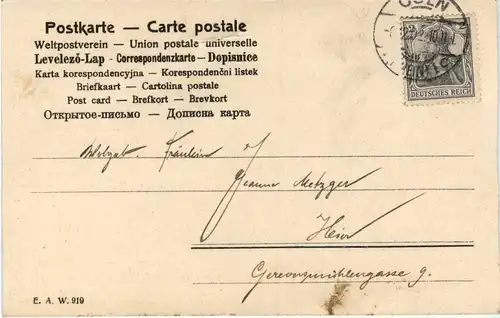 Postkarte — Carte postale
Weltpostverein — Union postale universelle
Levelező-Lap - Correspondenzkarte — Dopisnice
Karta korespondencyjna — Korespondenční listek
Briefkaart — Cartolina postale
Post card — Brefkort — Brevkort
Открытое-письмо — Дописна карта
CÖLN
DEUTSCHES REICH
Wolgeb. Fräulein
Metzger
Hier
Gereonsmühlengasse 9.
E. A. W. 919